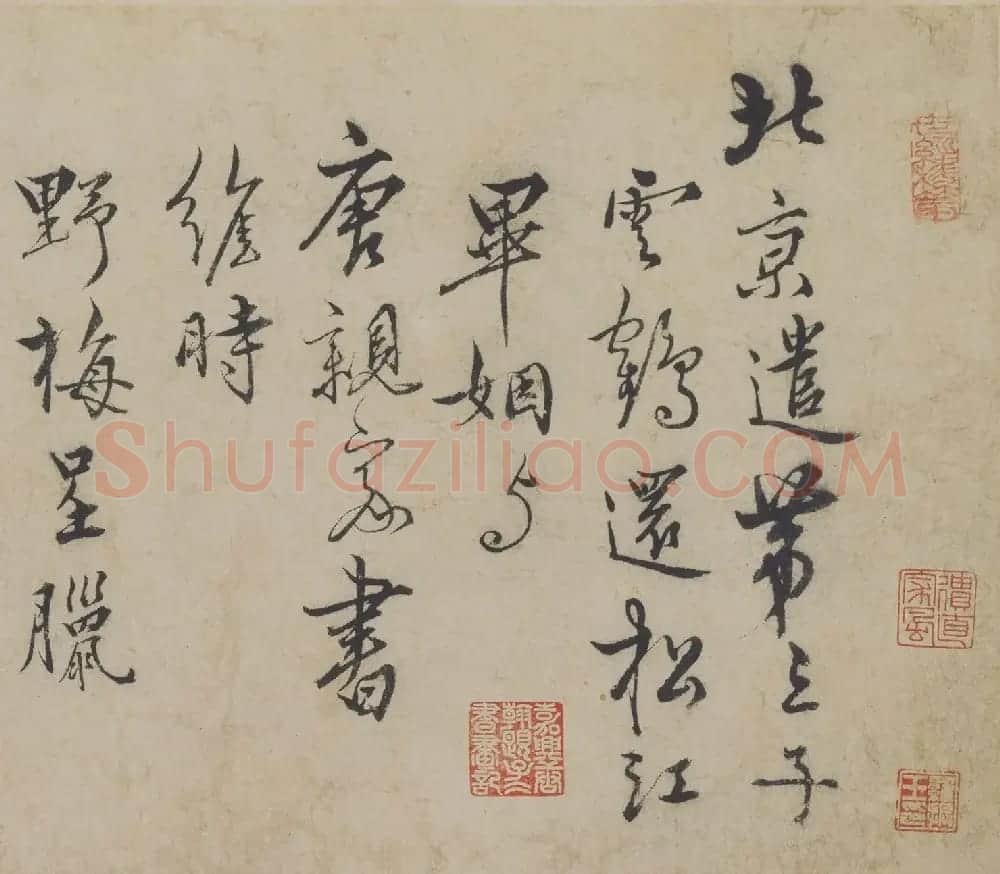 北京遣第三子
雲鶴還松江
畢姻与
唐親家書
維時
野梅呈臘
Shufaziliao.COM